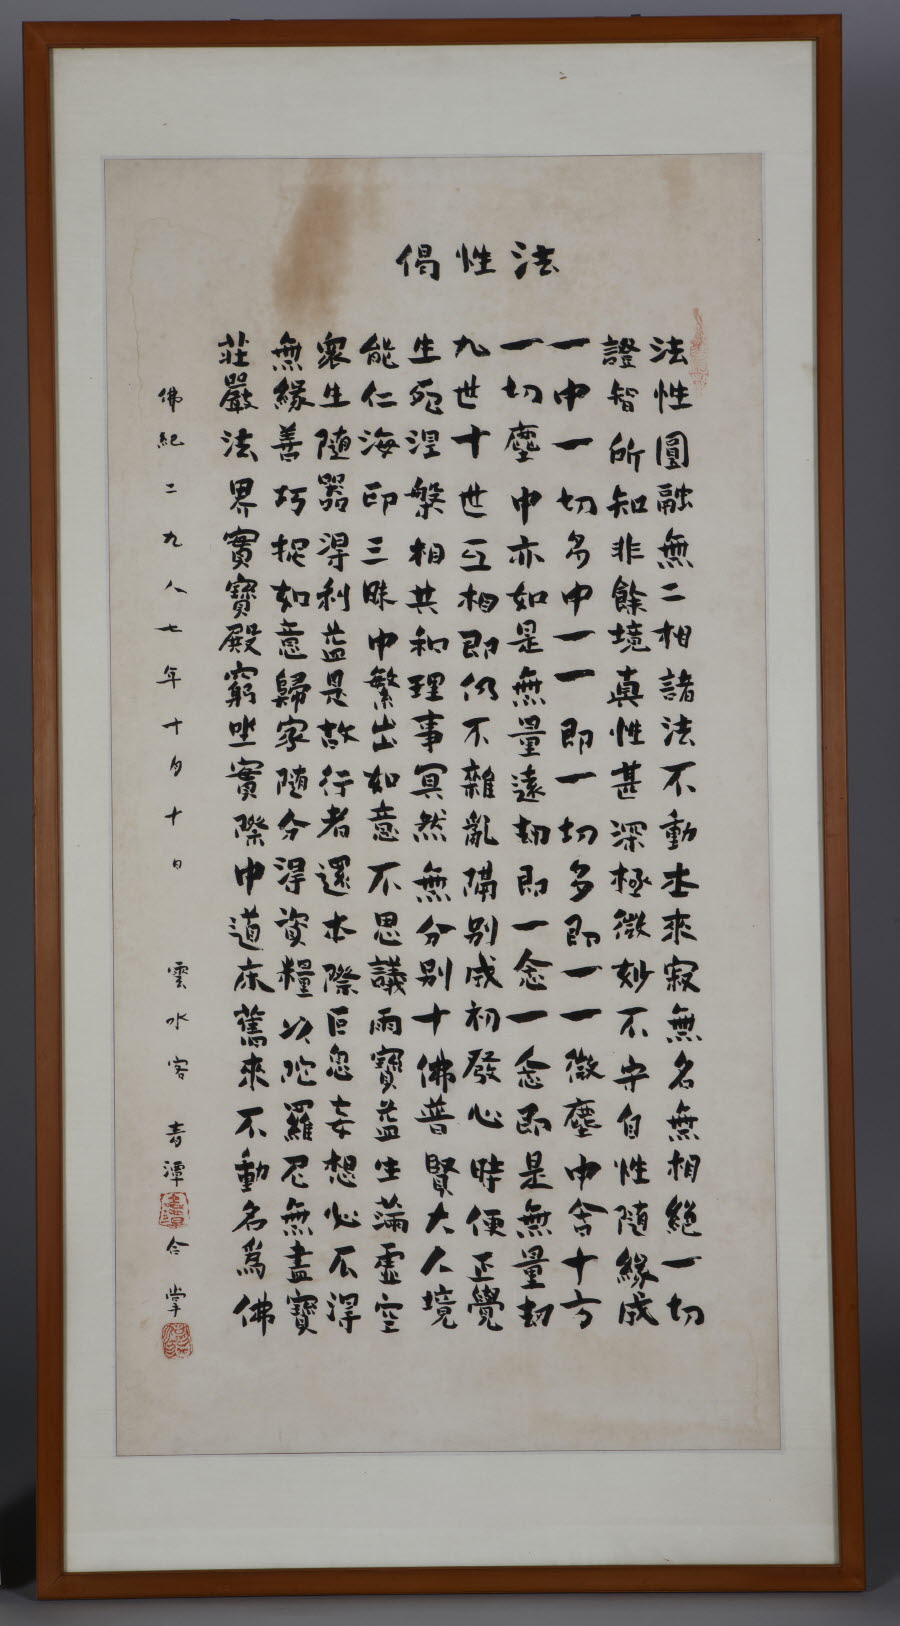 法性偈
法性圓融無二相諸法不動本來寂無名無相絕一切
證智所知非餘境真性甚深極微妙不守自性隨緣成
一中一切多中一一即一切多即一一微塵中含十方
一切塵中亦如是無量遠劫即一念一念即是無量劫
九世十世互相即仍不雜亂隔別成初發心時便正覺
生死涅槃相共和理事冥然無分別十佛普賢大人境
能仁海印三昧中繁出如意不思議雨寶益生滿虛空
衆生隨器得利益是故行者還本際叵息妄想必不得
無緣善巧捉如意歸家隨分得資糧以陀羅尼無盡寶
莊嚴法界實寶殿窮坐實際中道床舊來不動名爲佛
佛紀二九八七年十月十日 雲水客 青潭 合掌